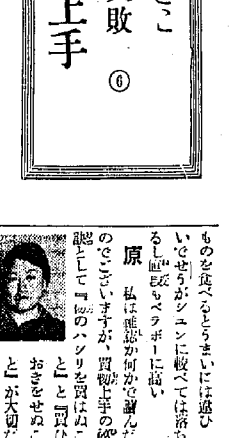 こ
敗
⑥
上手
ものを食べるとうまいには違ひ
いでせうがシユンに較べては落ち
るし値段もベラボーに高い
原 私は雑誌か何かで読んだ
のでございますが、買物上手の秘
訣として『物のハシリを買はぬこ
と』と『買ひ
おきをせぬこ
と』が大切だ